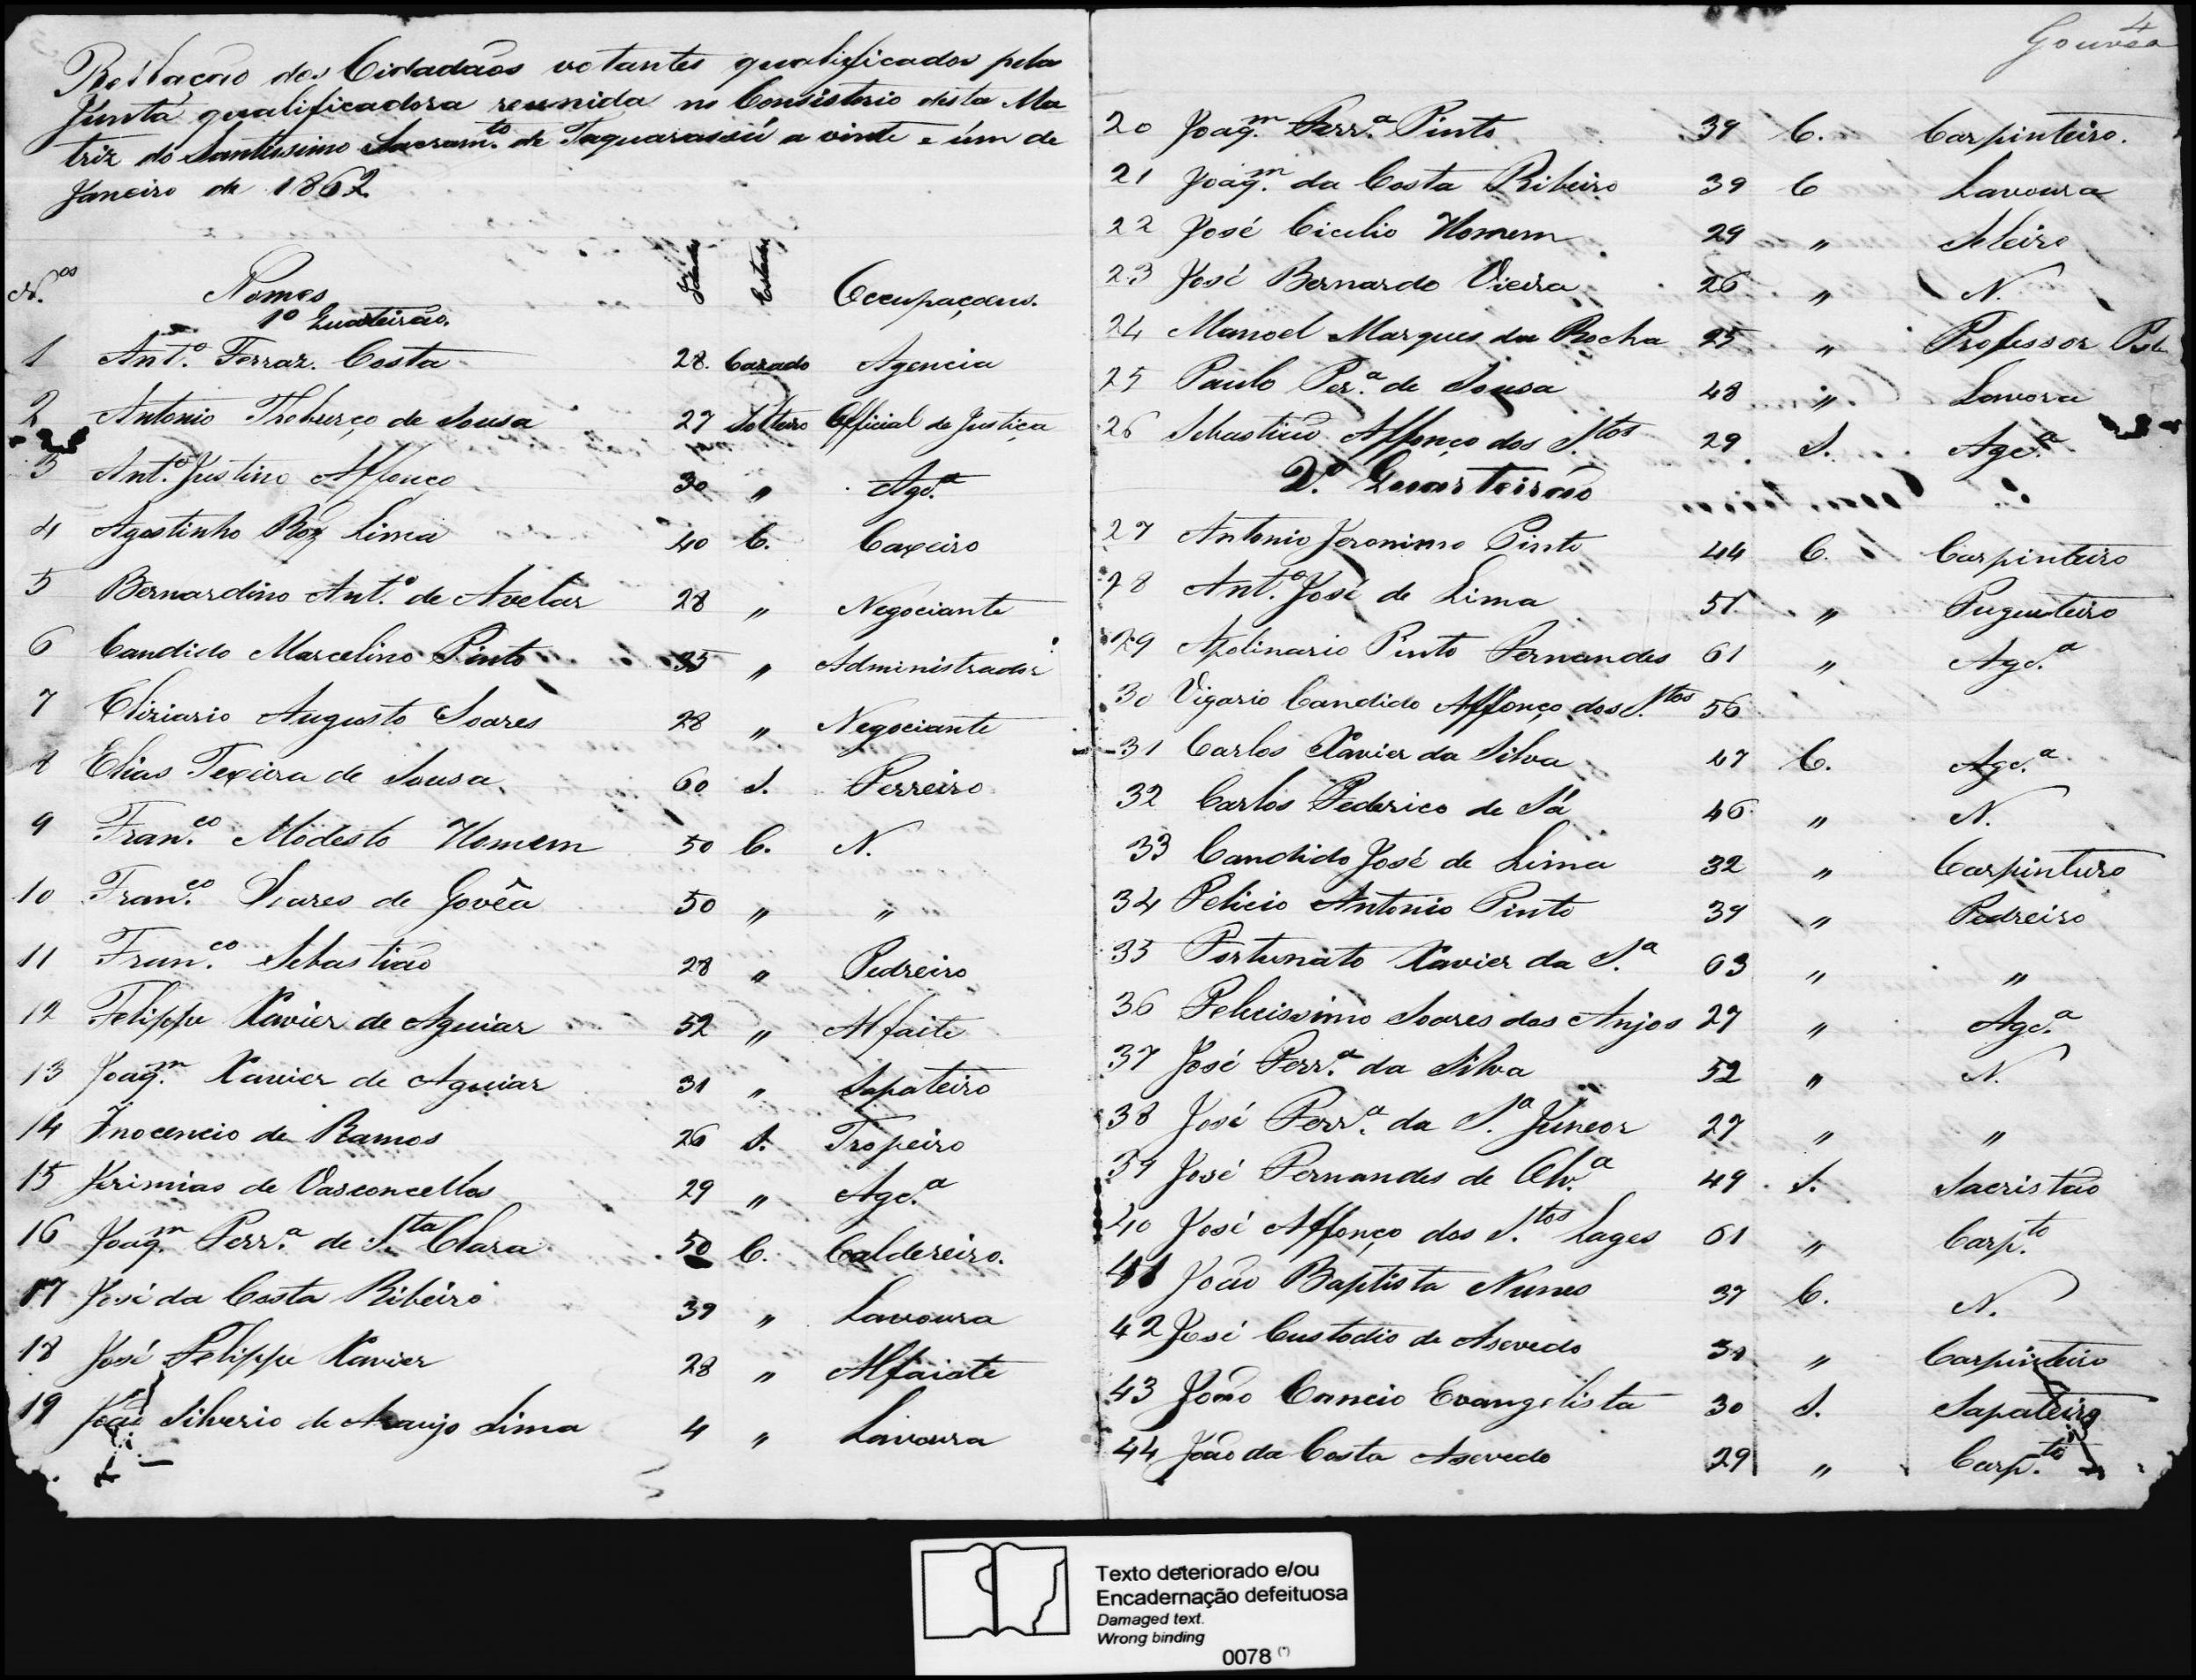 Rellação dos Cidadãos votantes qualificados pela
Junta qualificadora reunida no Consistorio desta Ma
triz do Santissimo Sacram.to de Taquarassú a vinte e úm de
Janeiro de 1862
N.os Nomes Idade Estado Occupaçoens.
1º Quarteirão.
1 Ant.o Ferraz. Costa 28. Cazado Agencia
2 Antonio Theburço de Sousa 27 Solteiro Official de Justiça
3 Ant.o Justino Affonço 30 " Age.a
4 Agostinho Roz Lima 40 C. Caxeiro
5 Bernardino Ant.o de Avelar 28 " Negociante
6 Candido Marcelino Pinto 35 " Administrador
7 Eliziario Augusto Soares 28 " Negociante
8 Elias Texeira de Sousa 60 S. Ferreiro
9 Fran.co Modesto Homem 50 C. N.
10 Fran.co Soares de Govêa 50 " "
11 Fran.co Sebastião 28 " Pedreiro
12 Felippe Xavier de Aguiar 52 " Alfaite
13 Joaq.m Xavier de Aguiar 31 " Sapateiro
14 Inocencio de Ramos 26 S. Tropeiro
15 Jerimias de Vasconcellos 29 " Age.a
16 Joaq.m Ferr.a de S.ta Clara 50 C. Caldereiro.
17 José da Costa Ribeiro 39 " Lavoura
18 José Felippe Xavier 28 " Alfaiate
19 João Silverio de Araujo Lima 4 " Lavoura
4
Gouvêa
20 Joaq.m Ferr.a Pinto 39 C. Carpinteiro.
21 Joaq.m da Costa Ribeiro 39 C Lavoura
22 José Cicilio Homem 29 " Seleiro
23 José Bernardo Vieira 26 " N.
24 Manoel Marques da Rocha 25 " Professor
25 Paulo Per.a de Sousa 48 " Lavora
26 Sebastião Affonço dos S.tos 29 S. Age.a
2.º Quarteirão
27 Antonio Jeronimo Pinto 44 C. Carpinteiro
28 Ant.o José de Lima 51 " Fugueteiro
29 Apolinario Pinto Fernandes 61 " Age.a
30 Vigario Candido Affonço dos S.tos 56
31 Carlos Xavier da Silva 47 C. Age.a
32 Carlos Federico de Sá 46 " N.
33 Candido José de Lima 32 " Carpinturo
34 Felicio Antonio Pinto 39 " Pedreiro
35 Fortunato Xavier da S.a 63 " "
36 Felicissimo Soares dos Anjos 27 " Age.a
37 José Ferr.a da Silva 52 " N.
38 José Ferr.a da S.a Juneor 27 " "
39 José Fernandes de Olv.a 49 S. Sacristão
40 José Affonço dos S.tos Lages 61 " Carp.to
41 João Baptista Nunes 37 C. N.
42 José Custodio de Asevedo " Carpinteiro
43 João Cancio Evangelista 30 S. Sapateiro
44 João da Costa Asevedo 29 " Carp.to
Texto deteriorado e/ou
Encadernação defeituosa
Damaged text.
Wrong binding
0078 (*)